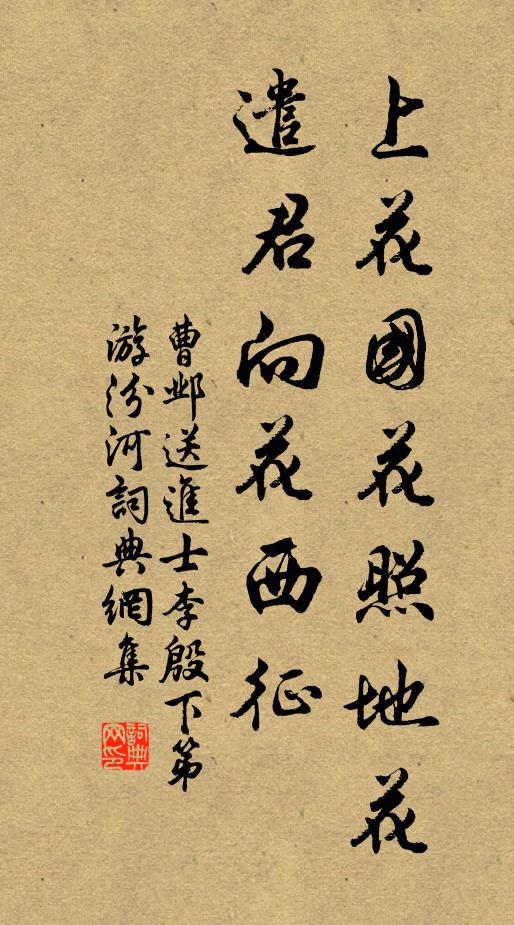 上花國花照地花
遣君向花西征
曹邺送進士李殷下第
游汾河詞典網集
詞典
网印